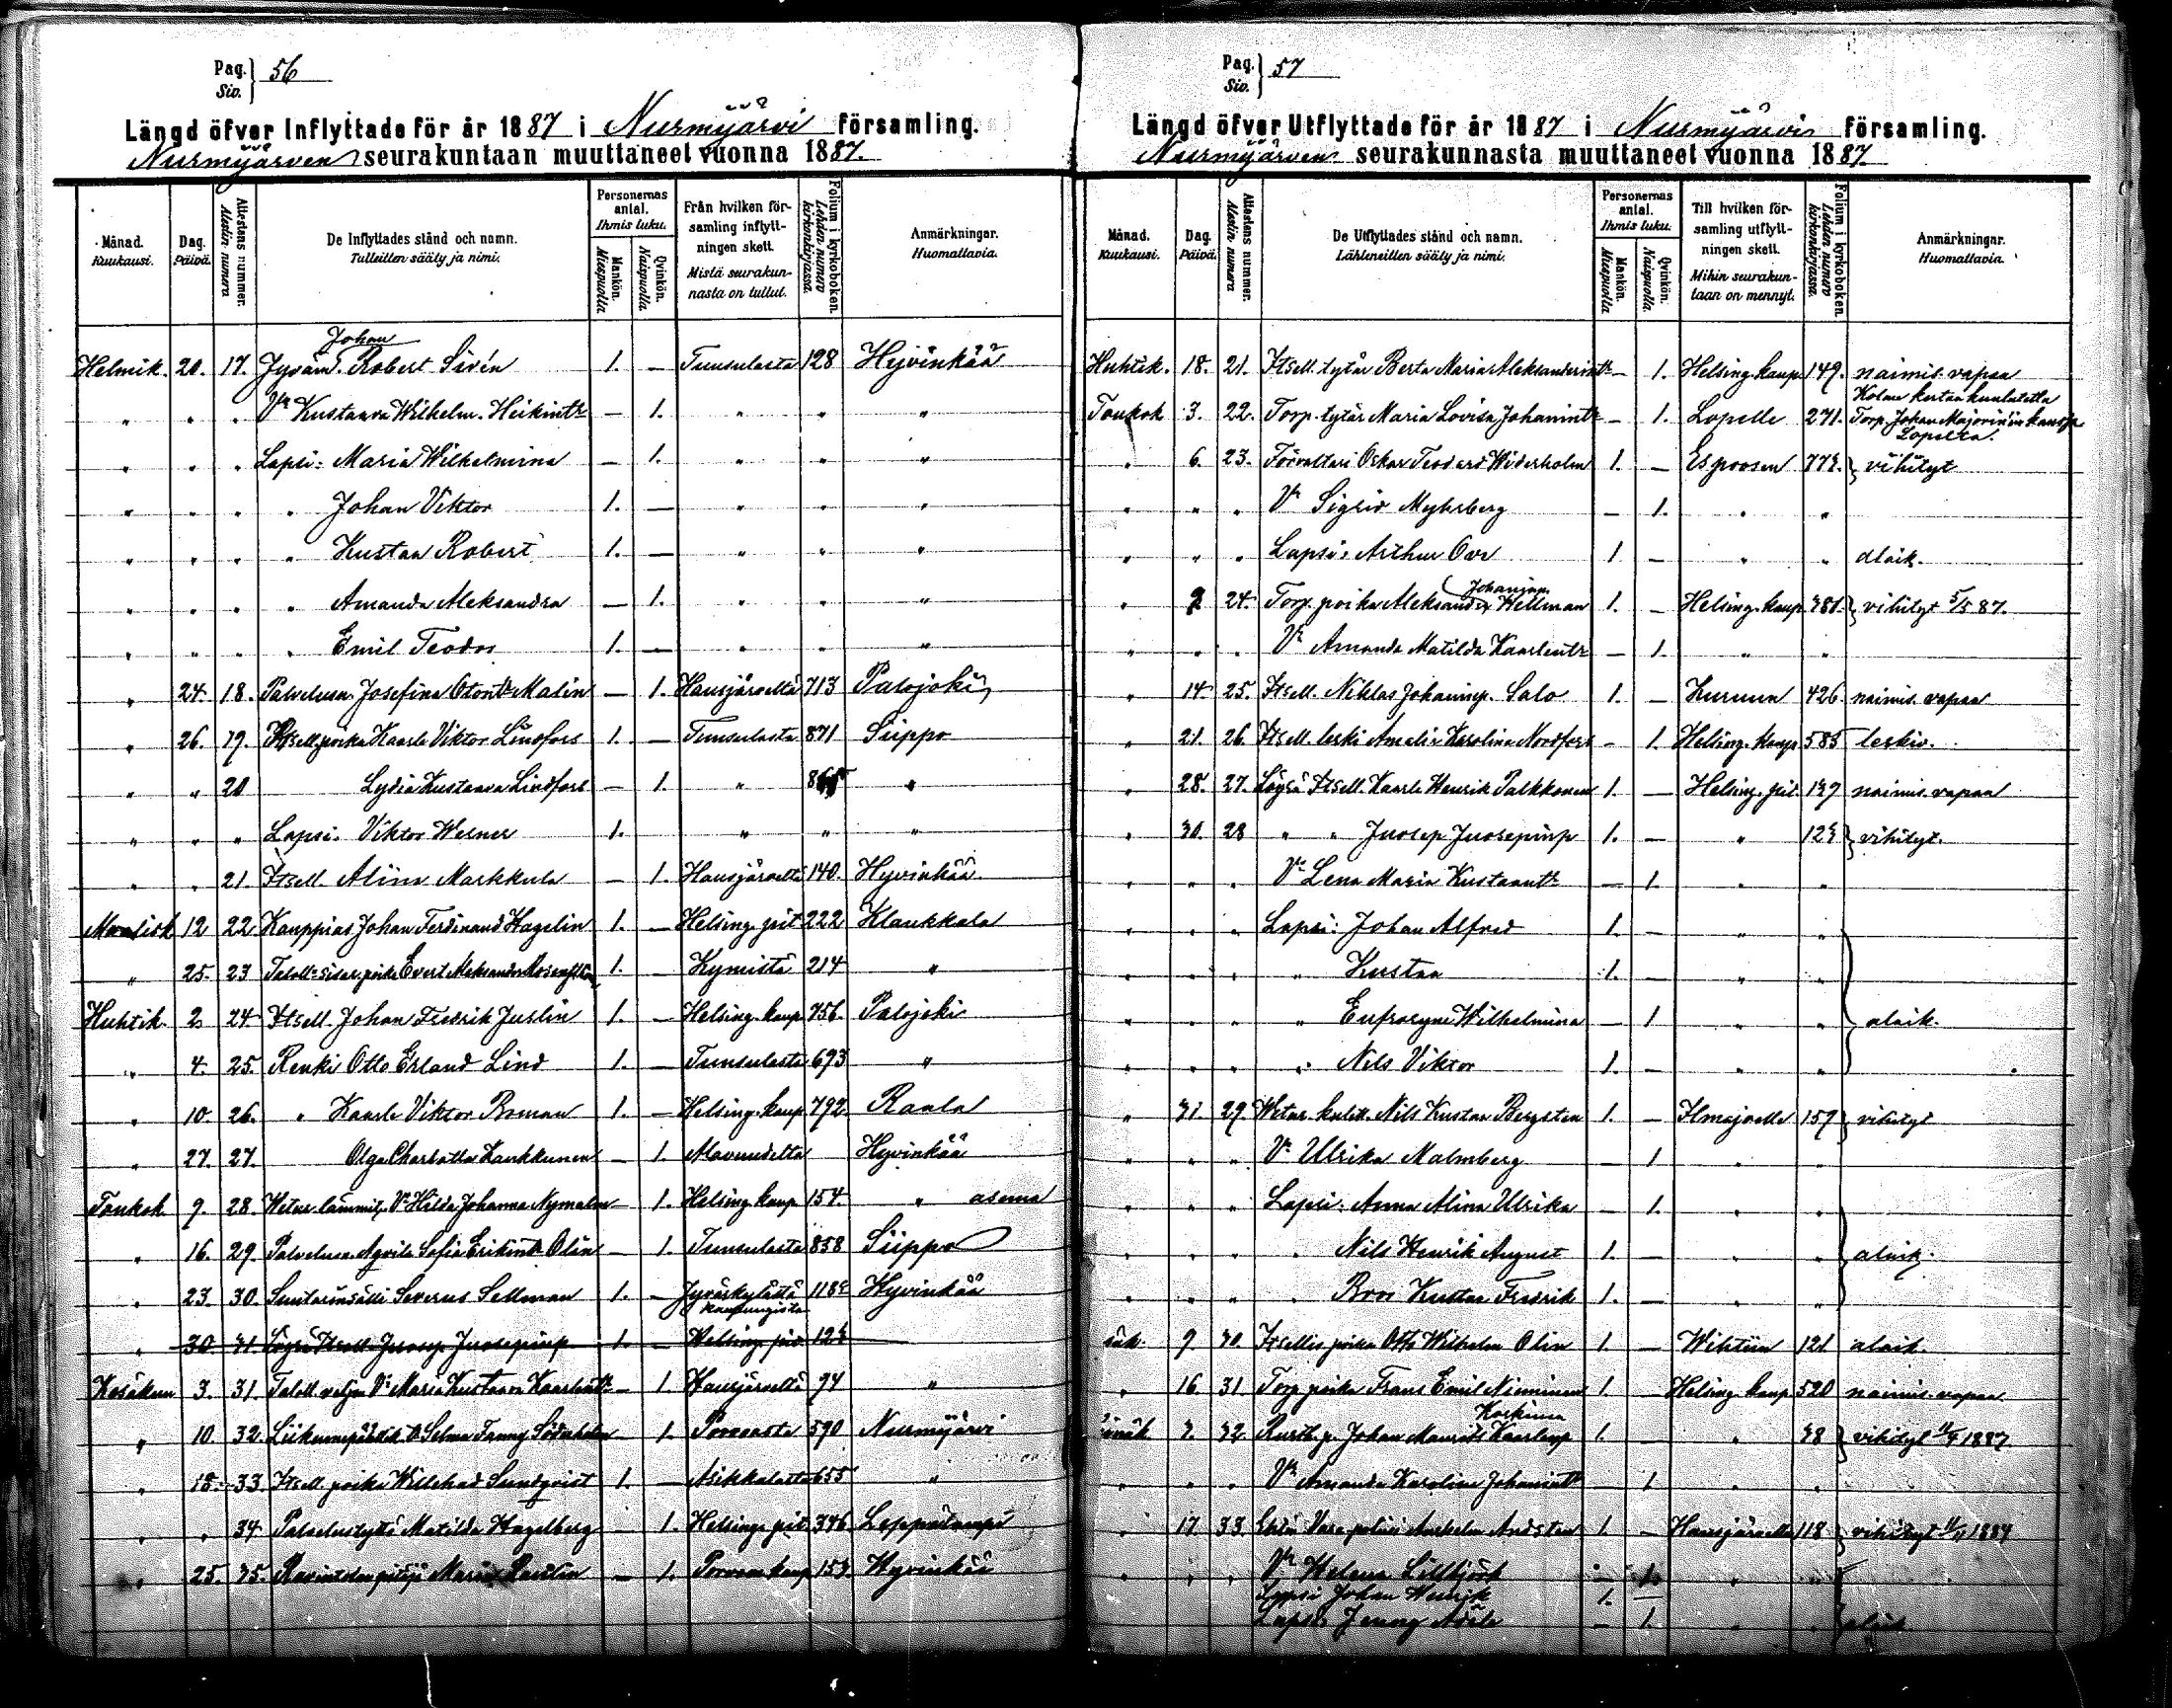 Pag. Siv. } 56
Längd öfver Inflyttade för år 1887 i Nurmijärvi församling.
Nurmijärven seurakuntaan muuttaneet vuonna 1887.
Månad. Kuukausi.
Dag. Päivä.
Attestens nummer. Alestin numero
De Inflyttades stånd och namn. Tulleitten sääty ja nimi.
Personernas antal. Ihmis luku.
Mankön. Miespuolia
Qvinkön. Naispuolia
Från hvilken församling inflyttningen skett. Mistä seurakunnasta on tullut.
Folium i kyrkoboken. Lehden numero kirkonkirjassa.
Anmärkningar. Huomattavia.
Johan
Helmik. 20. 17. Jyväm. Robert Sirén 1. — Tuusulasta 128 Hyvinkää
" " " Vo Kustaava Wilhelm. Heikintr — 1. " " "
" " " Lapsi: Maria Wilhelmina — 1. " " "
" " " " Johan Viktor 1. — " " "
" " " " Kustaa Robert 1. — " " "
" " " " Amanda Aleksandra — 1. " " "
" " " " Emil Teodor 1. — " " "
" 24. 18. Palvelusn. Josefina Otontr Malin — 1. Hausjärveltä 713 Palojoki
" 26. 19. Itsell. poika Kaarle Viktor Lindfors 1. — Tuusulasta 871 Siippo
" " 20 Lydia Kustaava Lindfors — 1. " "
" " " Lapsi: Viktor Werner 1. " " "
" " 21. Itsell. Alina Markkula — 1. Hausjärveltä 140. Hyvinkää
Maalisk 12 22 Kauppias Johan Ferdinand Hagelin 1. — Helsing. pit 222 Klaukkala
" 25. 23 Taloll. sisar. poika Evert Aleksander 1. — Kymistä 214 "
Huhtik. 2 24 Itsell. Johan Fredrik Juslin 1. — Helsing. kaup 756. Palojoki
" 4. 25. Renki Otto Erland Lind 1. — Tuusulasta 693 "
" 10. 26. " Kaarle Viktor Roman 1. — Helsing. kaup 792 Raala
" 27. 27. Olga Charlotta Kaukkunen — 1. Alavuudelta Hyvinkää
Toukok 9. 28. Wetur. lämmitt. Vo Hilda Johanna Nymalm — 1. Helsing. kaup 154. " asema
" 16. 29. Palvelusn. Agvila Sofia Erikintr Olin — 1. Tuusulasta 858 Siippo
" 23. 30. Suutarinsälli Severus Sellman 1. — Jyväskylästä kaupungista 1184 Hyvinkää
" 30. 31. Löysä Itsell. Juosep Juosepinp 1. — Helsing. pit. 124
Kesäkuu 3. 31. Taloll. veljen Vo Maria Kustaava Kaarlentr — 1. Hausjärveltä 94 "
" 10. 32. Selma Fanny Söderholm 1. Porvoosta 590 Nurmijärvi
" 18. 33. Itsell. poika Willehad Sundqvist 1. — Asikkalasta 655 "
" " 34 Palvelustyttö Matilda Hagelberg 1. Helsing. pit 346 Leppälampi
" 25. 35. Ravintolan pitäjä Maria — 1. Porvoon kaup 153 Hyvinkää
Pag. Siv. } 57
Längd öfver Utflyttade för år 1887 i Nurmijärvi församling.
Nurmijärven seurakunnasta muuttaneet vuonna 1887.
Månad. Kuukausi.
Dag. Päivä.
Attestens nummer. Alestin numero
De Utflyttades stånd och namn. Lähteneitten sääty ja nimi.
Personernas antal. Ihmis luku.
Mankön. Miespuolia
Qvinkön. Naispuolia.
Till hvilken församling utflyttningen skett. Mihin seurakuntaan on mennyt.
Folium i kyrkoboken. Lehden numero kirkonkirjassa.
Anmärkningar. Huomattavia.
Huhtik. 18. 21. Itsell. tytär Berta Maria Aleksanderintr — 1. Helsing. kaup. 149. naimis. vapaa
Toukok 3. 22. Torp. tytär Maria Lovisa Johanintr — 1. Lopelle 271. Kolme kertaa kuulutettu Torp. Johan Majorin'in kanssa Lopelta.
" 6. 23. Förvaltari Oskar Teodard Widerholm 1. — Espoosen 774. } vihityt
" " " Vo Sigrid Myhrberg — 1. " "
" " " Lapsi: Arthur Ovr 1 — " " alaik.
" 9 24. Torp. poika Aleksander Johaninp. Hellman 1. — Helsing. kaup 381. } vihityt 5/5 87.
" " " Vo Amanda Matilda Kaarlentr — 1. " "
" 14 25. Itsell. Niklas Johaninp. Salo 1. — Kuruun 426. naimis. vapaa
" 21. 26. Itsell. leski Amalia Karolina Nordfors — 1. Helsing. kaup 583 leskiv.
" 28. 27. Löysä Itsell. Kaarle Henrik Palkkonen 1. — Helsing. pit. 149 naimis. vapaa
" 30. 28 " " Juosep Juosepinp 1. — " 124 } vihityt.
" " " Vo Lena Maria Kustaantr — 1. " "
" " " Lapsi: Johan Alfred 1. — " "
" " " " Kustaa 1. — " "
" " " " Eufrosyne Wilhelmina — 1 " " } alaik.
" " " " Nils Viktor 1. — " "
" 31 29. Wetur. kulett. Nils Kustaa Bergsten 1. — Ilmajoelle 157 } vihityt
" " " Vo Ulrika Malmberg — 1 " "
" " " Lapsi: Anna Alina Ulrika — 1. " "
" " " " Nils Henrik August 1. — " " } alaik.
" " " " Bror Kustaa Fredrik 1. — " "
äk. 9. 30. Itsellis. poika Otto Wilhelm Olin 1. — Wihtiin 121 alaik.
" 16 31 Torp. poika Frans Emil Nieminen 1. Helsing. kaup 520 naimis. vapaa
näk 7. 32 Rusth. p. Johan Maurits Kaarlenp Koskinen 1. — " 38 } vihityt 1887
" " " Vo Amanda Karolina Johanintr — 1 " "
" 17 33. Anshelm Andsten 1. — Hausjärvelle 118 } vihityt 1884
" " " Vo Helena Lillbjörk — 1. " "
Lapsi Johan Henrik 1. —
Lapsi Jenny Adele — 1. " " } alaik